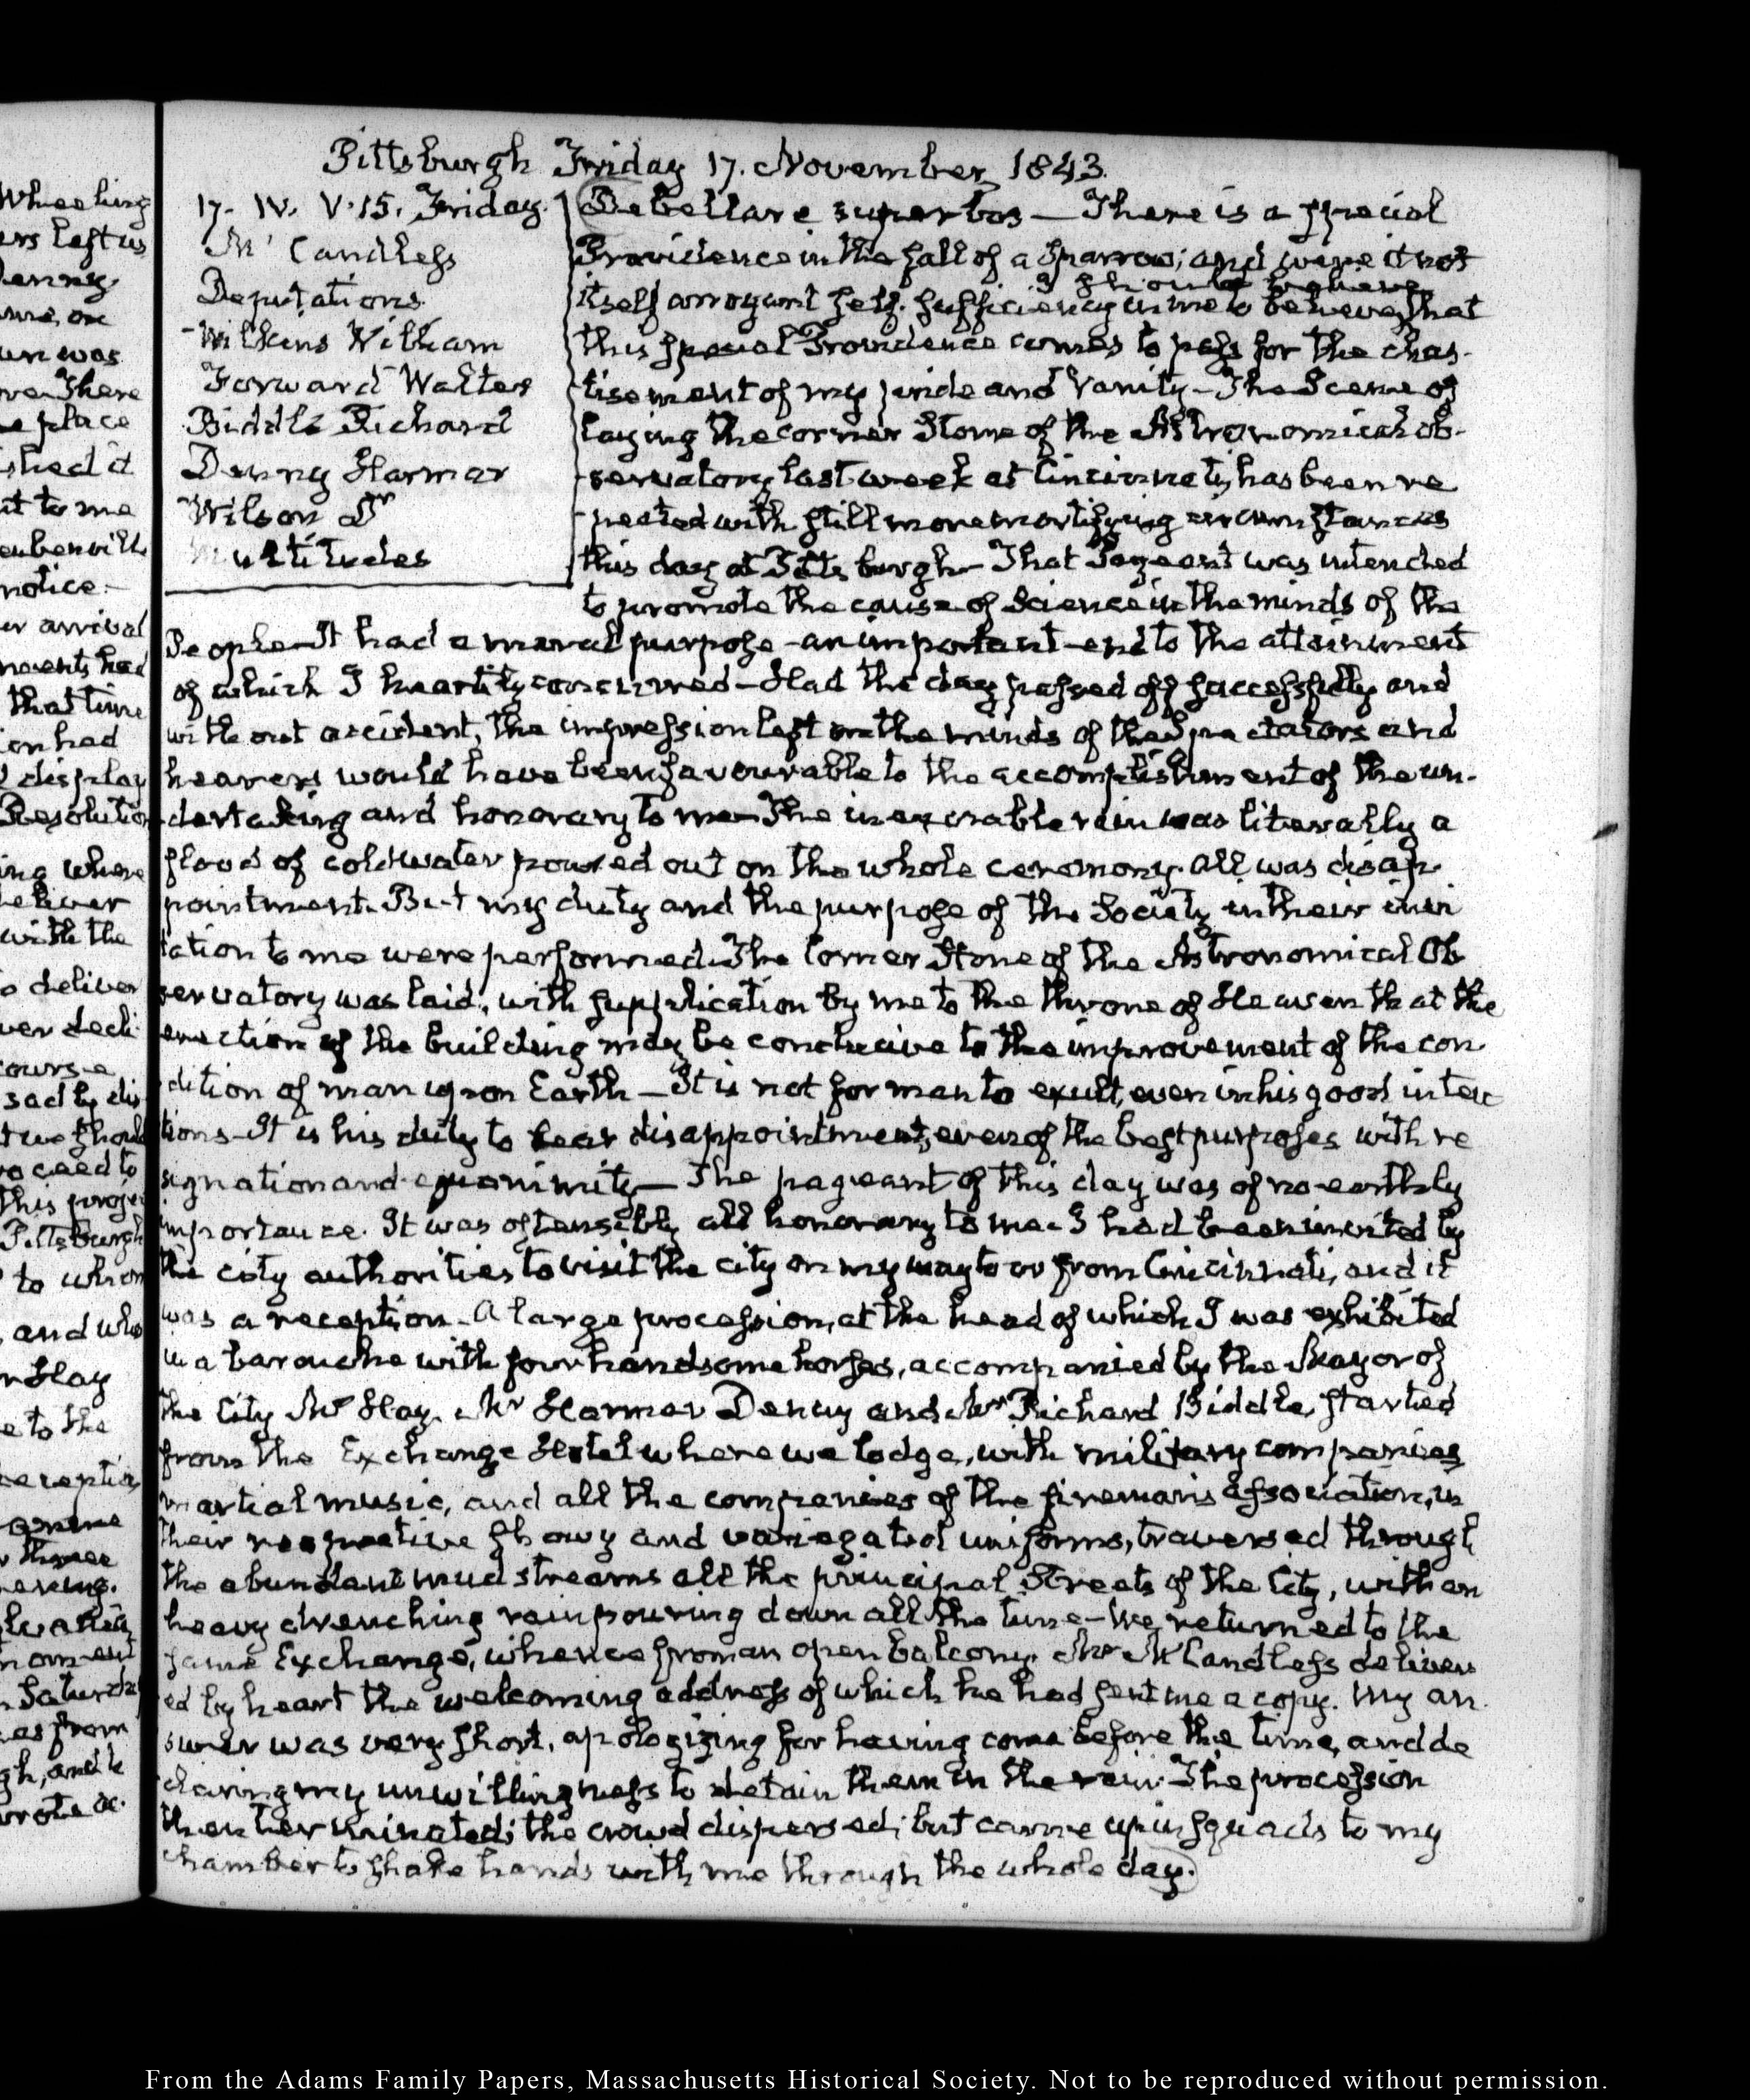 Wheeling
ers left us
Denny
me, on
un was
ve There
e place
shed it
it to me
eubenville
notice.—
er arrival
ments had
that time
ion had
display
Resolution
ing where
deliver
with the
to deliver
ver decli
course
sad by dis
t we should
roceed to
this projec
Pittsburgh
to whom
, and who
r Hay
e to the
receptio
Saturda
as from
gh, and
wrote &c.
Pittsburgh Friday 17. November 1843.
17. IV. V.15. Friday.
Mc Candless
Deputations
Wilkins William
Forward Walter
Biddle Richard
Denny Harmar
Wilson Dr
Multitudes
Debellare superbos — There is a special
Providence in the fall of a Sparrow; and were it not
I should believe
itself arrogant self-sufficiency in me to believe, that
this special Providence comes to pass for the chas-
tisement of my pride and Vanity — The Scene of
laying the corner Stone of the Astronomical ob-
servatory last week at Cincinnati, has been re
peated with still more mortifying circumstances
this day at Pittsburgh — That Pageant was intended
to promote the cause of Science in the minds of the
People — It had a moral purpose — an important end to the attainment
of which I heartily concurred — Had the day passed off successfully and
without accident, the impression left on the minds of the Spectators and
hearers would have been favourable to the accomplishment of the un-
dertaking and honorary to me — The inexorable rain was literally a
flood of cold water poured out on the whole ceremony. all was disap-
pointment. But my duty and the purpose of the Society in their invi
tation to me were performed. The Corner Stone of the Astronomical Ob
servatory was laid, with supplication by me to the throne of Heaven that the
erection of the building may be conducive to the improvement of the con-
dition of man upon Earth — It is not for man to exult, even in his good inten
tions — It is his duty to bear disappointment, even of the best purposes with re
signation and equanimity — The pageant of this day was of no earthly
importance. It was ostensibly all honorary to me — I had been invited by
the city authorities to visit the city on my way to or from Cincinnati, and it
was a reception — A large procession, at the head of which I was exhibited
in a barouche with four handsome horses, accompanied by the Mayor of
the City Mr Hay. Mr Harmar Denny and Mr Richard Biddle, started
from the Exchange Hotel where we lodge, with military companies
martial music, and all the companies of the firemans association, in
their respective showy and variegated uniforms, traversed through
the abundant mud streams all the principal Streets of the City, with an
heavy drenching rain pouring down all the time — We returned to the
same Exchange, whence from an open balcony. Mr McCandless deliver
ed by heart the welcoming address of which he had sent me a copy. My an-
swer was very short, apologizing for having come before the time, and de
claring my unwillingness to detain them in the rain. The procession
then terminated; the crowd dispersed; but came up in squads to my
chamber to shake hands with me through the whole day.
From the Adams Family Papers, Massachusetts Historical Society. Not to be reproduced without permission.